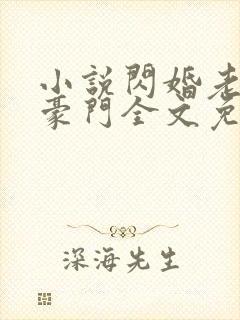 小說閃婚老
豪門全文免
深海先生